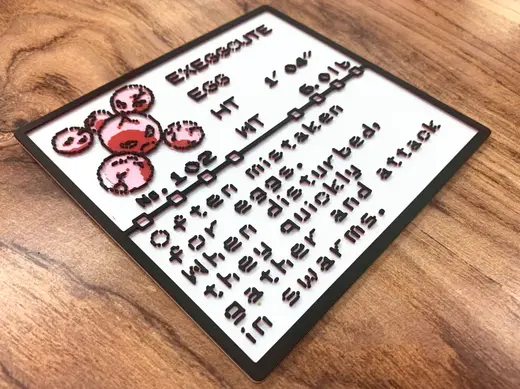 EXEGGCUTE
EGG
HT 1'04"
WT 6.0lb
№.102
Often mistaken
for eggs.
When disturbed,
they quickly
gather and attack
in swarms.